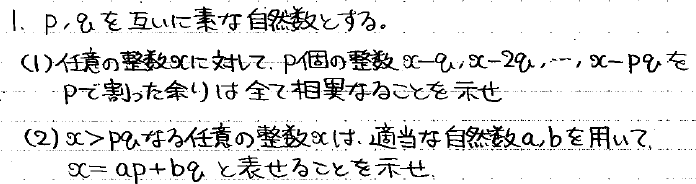 1. p, qを互いに素な自然数とする。
(1)任意の整数xに対して、p個の整数 x-q, x-2q, …, x-pq を
pで割った余りは全て相異なることを示せ
(2) x>pqなる任意の整数xは、適当な自然数a,bを用いて、
x=ap+bq と表せることを示せ.